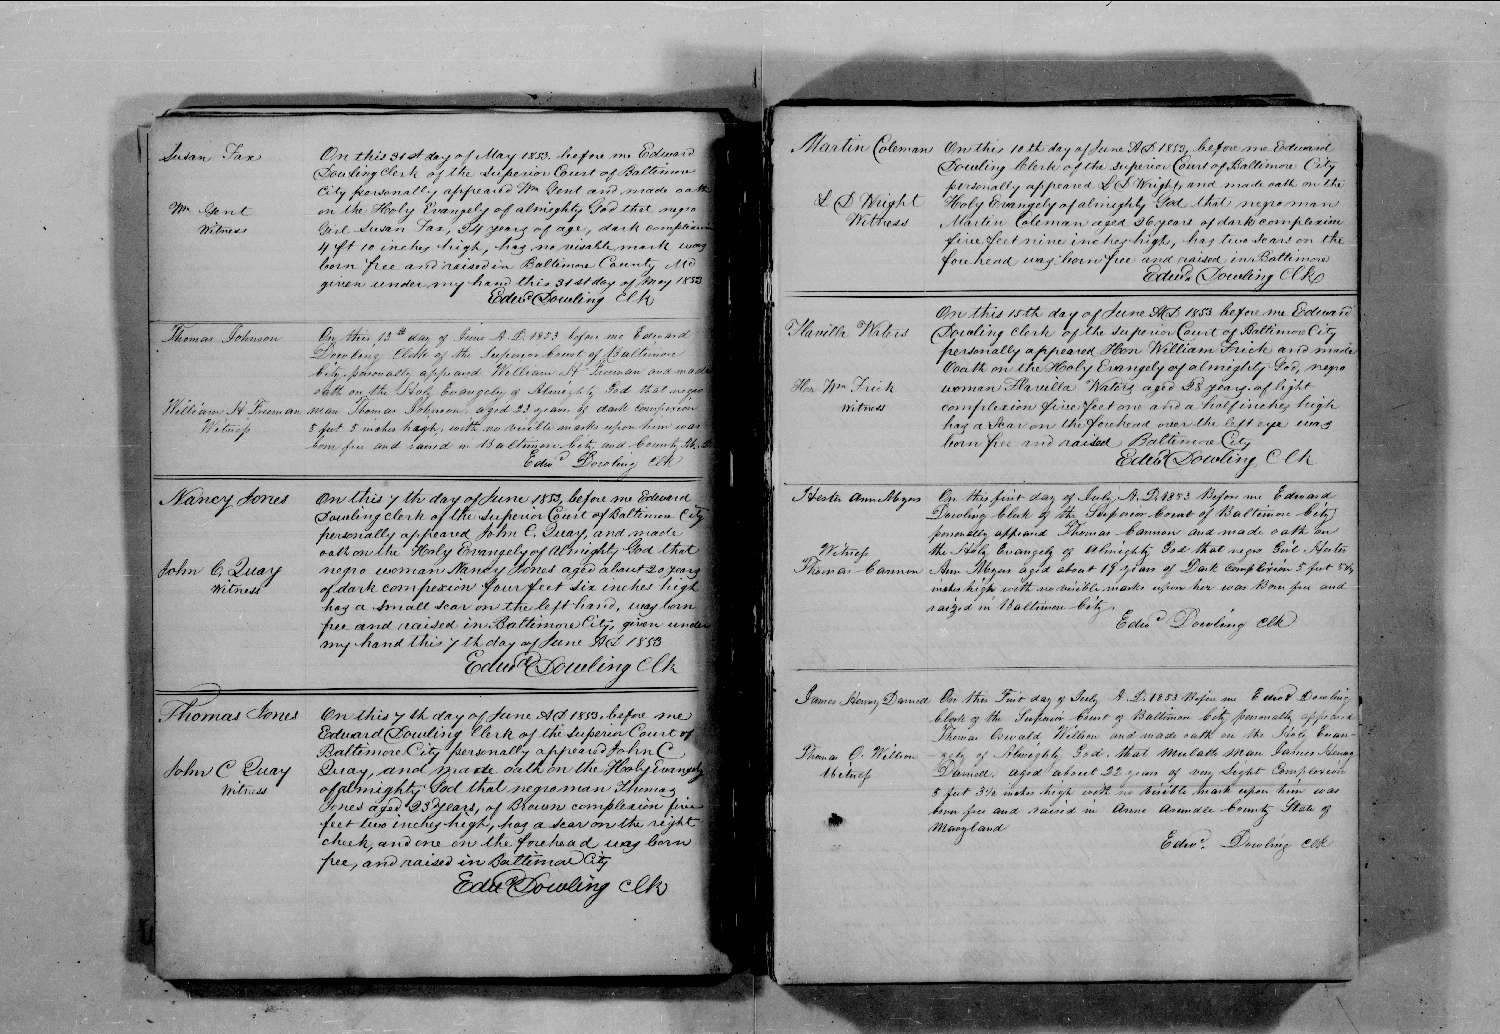 Susan Fax
On this 31st day of May 1853, before me Edward
Dowling Clerk of the Superior Court of Baltimore
City personally appeared Wm Gent and made oath
Wm Gent
Witness
on the Holy Evangely of almighty God that negro
Girl Susan Fax, 24 years of age, dark complexion
4 ft 10 inches high, has no visable mark was
born free and raised in Baltimore County Md
given under my hand this 31st day of May 1853
Edwd Dowling Clk
Thomas Johnson
On this 13th day of June A.D. 1853 before me Edward
Dowling Clerk of the Superior Court of Baltimore
City personally appeared William H Freeman and made
oath on the Holy Evangely of Almighty God that negro
William H Freeman
Witness
man Thomas Johnson, aged 22 years of dark compexion
5 feet 5 inches high, with no visible marks upon him was
born free and raised in Baltimore City and County
Edwd Dowling Clk
Nancy Jones
On this 7th day of June 1853, before me Edward
Dowling Clerk of the Superior Court of Baltimore City
personally appeared John C. Quay, and made
oath on the Holy Evangely of Almighty God that
John C. Quay
Witness
negro woman Nancy Jones aged about 20 years
of dark compexion four feet six inches high
has a small scar on the left hand, was born
free and raised in Baltimore City, given under
my hand this 7th day of June AD 1853
Edwd Dowling Clk
Thomas Jones
On this 7th day of June AD 1853, before me
Edward Dowling Clerk of the Superior Court of
Baltimore City personally appeared John C
John C Quay
Witness
Quay, and made oath on the Holy Evangely
of almighty God that negro man Thomas
Jones aged 23 years, of Brown complexion five
feet two inches high, has a scar on the right
cheek, and one on the forehead was born
free, and raised in Baltimore City
Edwd Dowling Clk
Martin Coleman
On this 10th day of June AD 1853, before me Edward
Dowling Clerk of the Superior Court of Baltimore City
personally appeared L D Wright, and made oath on the
L D Wright
Witness
Holy Evangely of almighty God that negro man
Martin Coleman aged 26 years of dark complexion
five feet nine inches high, has two scars on the
forehead was born free and raised in Baltimore
Edwd Dowling Clk
Flavilla Waters
On this 15th day of June AD 1853 before me Edward
Dowling Clerk of the Superior Court of Baltimore City
personally appeared Hon William Frick and made
Oaoth on the Holy Evangely of almighty God, negro
Hon Wm Frick
witness
woman Flavilla Waters aged 28 years, of light
complexion five feet one and a half inches high
has a scar on the forehead over the left eye was
born free and raised Baltimore City
Edwd Dowling Clk
Hester Ann Myers
On this first day of July A.D. 1853 Before me Edward
Dowling Clerk of the Superior Court of Baltimore City
personally appeared Thomas Cannon and made oath on
Witness
Thomas Cannon
the Holy Evangely of Almighty God that negro Girl Hester
Ann Myers aged about 19 years of Dark Complexion 5 feet
inches high with no visible marks upon her was Born free and
raized in Baltimore City
Edwd Dowling Clk
James Henry Darnell
On this First day of July A.D. 1853 Before me Edwd Dowling
Clerk of the Superior Court of Baltimore City personally appeared
Thomas Oswald Wilson and made oath on the Holy Evan-
Thomas O. Wilson
Witness
gely of Almighty God, that Mulatto Man James Henry
Darnell, aged about 22 years of very Light Complexion
5 feet 3½ inches high with no visible mark upon him was
born free and raised in Anne Arundel County State of
Maryland
Edwd. Dowling Clk